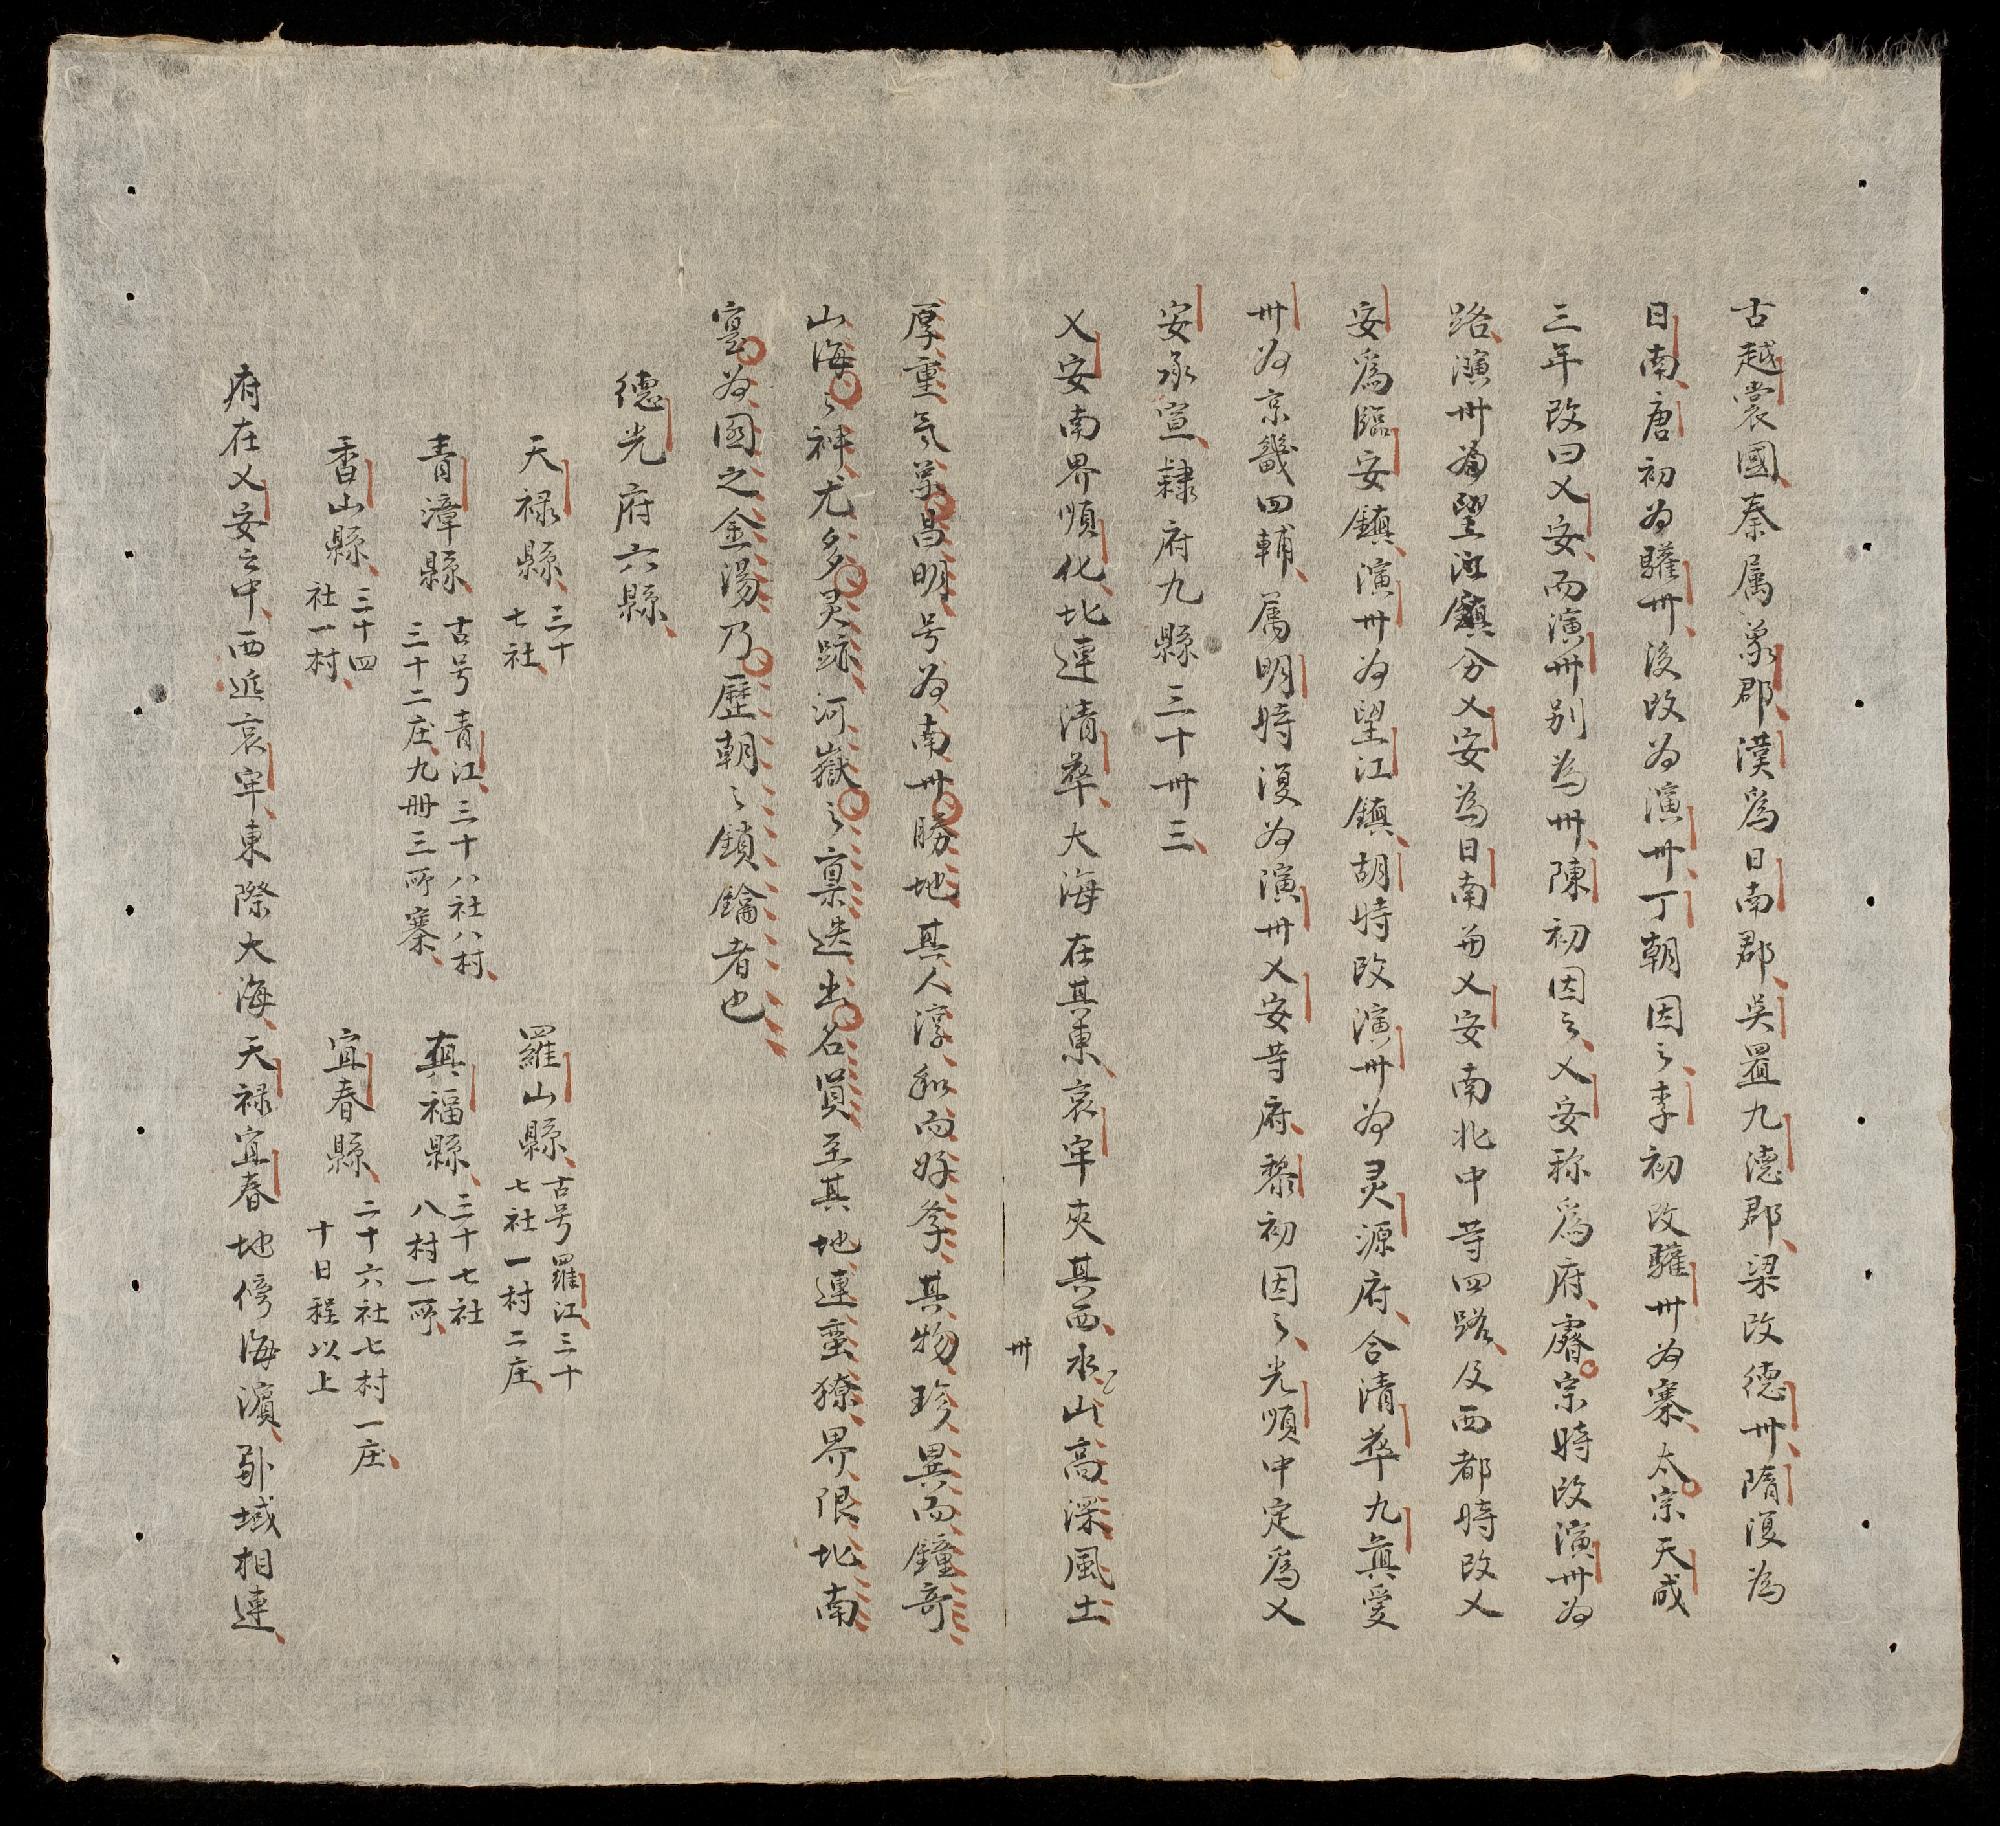 古越裳國秦属象郡漢爲日南郡吳置九德郡梁改德卅隋復为
日南唐初为驩卅後改为演卅丁朝因之李初改驩卅为寨太宗天成
三年改曰乂安而演卅别为卅陳初因之乂安称爲府睿宗時改演卅为
路演卅為望江鎮分乂安為日南為乂安南北中等四路及西都時改乂
安爲臨安鎮演卅为望江鎮胡時改演卅为灵源府合清華九真爱
卅为京畿四輔属明時復为演卅乂安等府黎初因之光順中定爲乂
安承宣隷府九縣三十卅三
乂安南界順化北連清華大海在其東哀牢夾其西水山高深風土
卅
厚重氣象昌明号为南卅勝地其人淳和而好孝其物珍異而鐘奇
山海之神尤多灵跡河嶽之禀迭出名員至其地連蛮獠界限北南
寔为國之金湯乃歷朝之鎖鑰者也
德光府六縣
天禄縣 三十七社 羅山縣 古号羅江三十七社一村二庄
青漳縣 古号青江三十八社八村三十二庄九册三所寨 真福縣 三十七社八村一所
香山縣 三十四社一村 宜春縣 二十六社七村一庄十日程以上
府在乂安之中西近哀牢東際大海天禄宜春地傍海濱界域相連